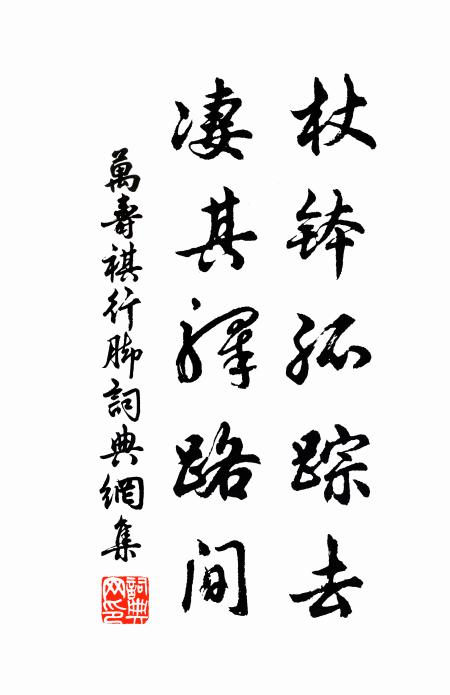 杖钵孤踪去
凄其驿路间
萬壽祺行脚詞典網集
詞典网印